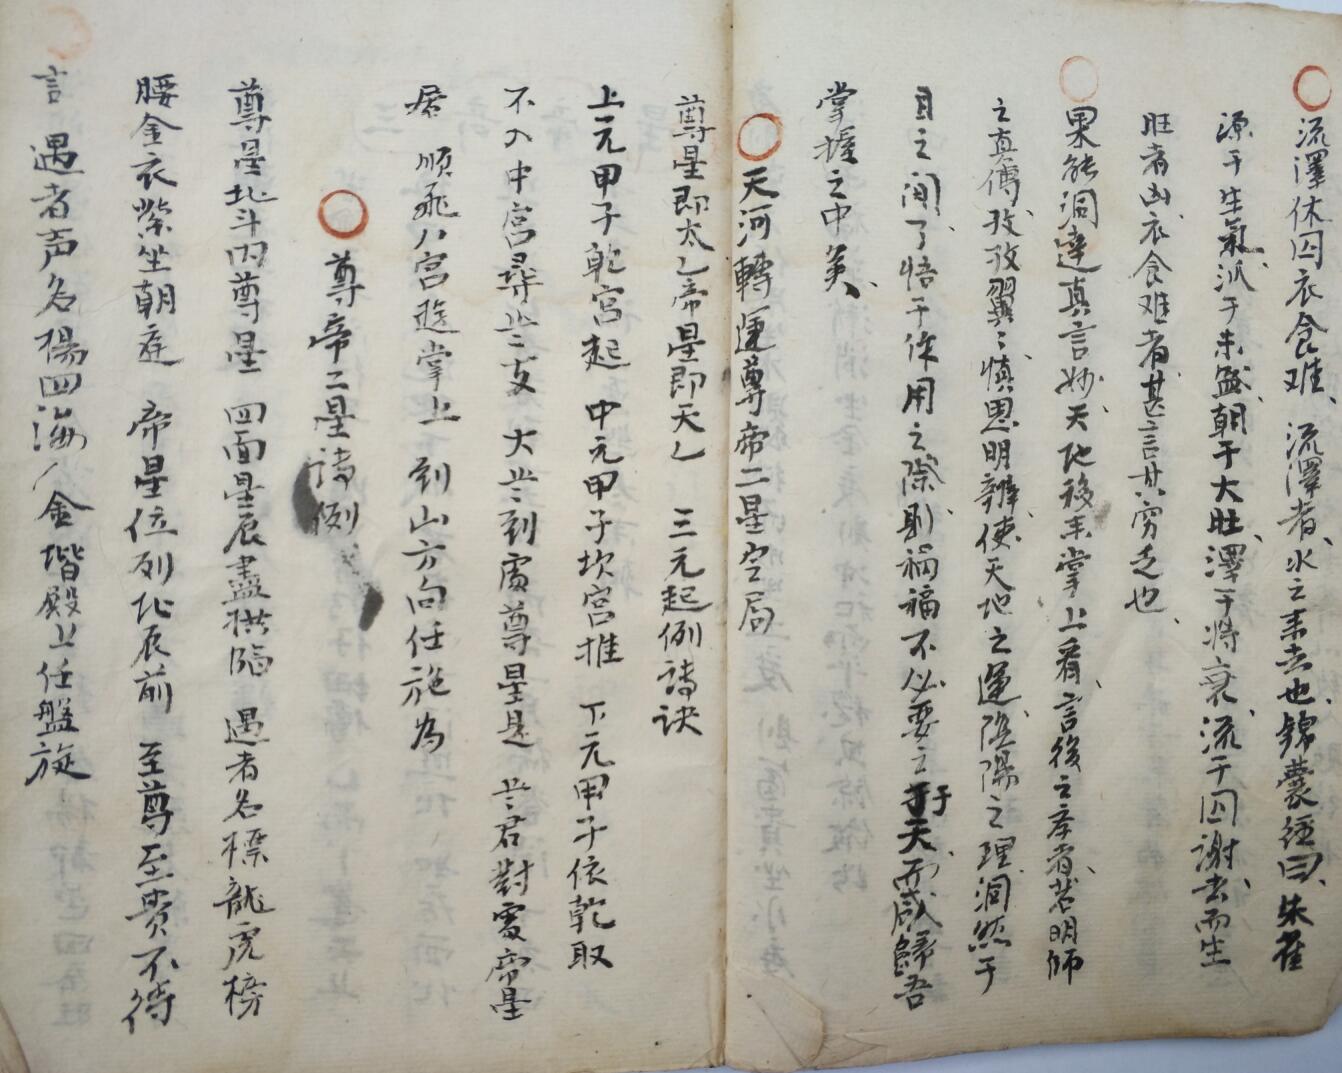 流澤休囚衣食难、流澤者、水之来去也、錦囊经曰、朱雀
源于生氣、派于未盛、朝于大旺、澤于将衰、流于囚謝、去而生
旺者凶、衣食难者、甚言其窮乏也、
果能洞達真言妙、天地移来掌上看、言後之李者、若明師
之真傳、孜孜翼〻、慎思明辨、使天地之運、陰陽之理、洞然于
目之间、了悟于作用之際、則禍福不必要之于天、而咸歸吾
掌握之中矣、
天河轉運尊帝二星空局
尊星即太乙帝星即天乙　三元起例詩诀
上元甲子乾宫起　中元甲子坎宫推　下元甲子依乾取
不入中宫尋此支　大岁到處尊星是　岁君對處帝星
居　順飛八宫遊掌上　到山方向任施为
尊帝二星詩例
尊星北斗内尊星　四面星辰盡拱臨　遇者名標龍虎榜
腰金衣紫坐朝庭　帝星位列北辰前　至尊至貴不待
言　遇者声名揚四海　金堦殿上任盤旋